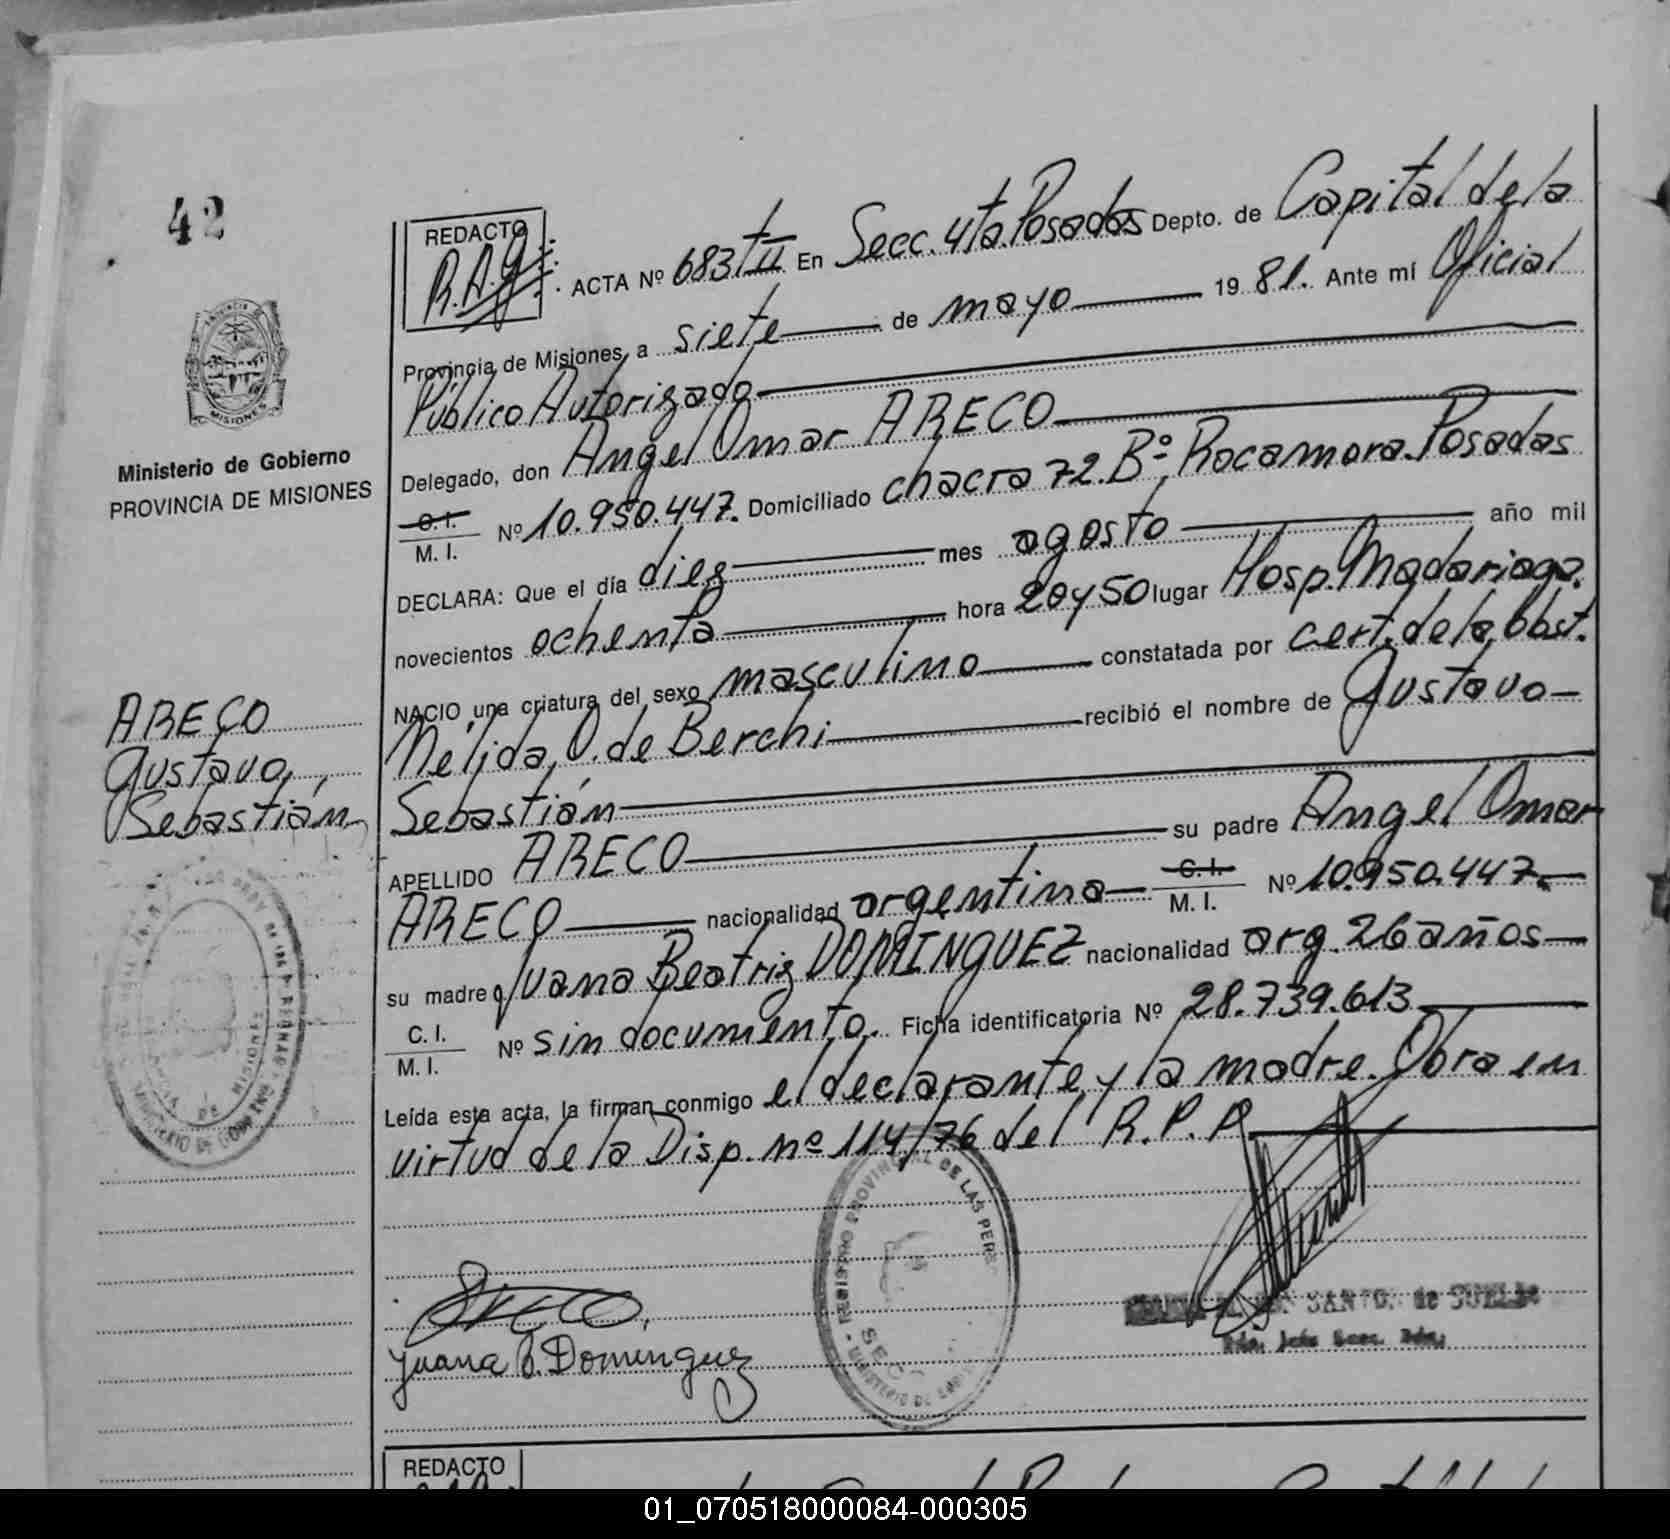 42
REDACTO
R.A.G.
ACTA Nº 683 T II En Secc. 4ta. Posadas Depto. de Capital de la
Provincia de Misiones, a siete de mayo 1981. Ante mí Oficial
Público Autorizado
Delegado, don Angel Omar ARECO
C.I. M. I. Nº 10.950.447. Domiciliado chacra 72. Bº. Rocamora. Posadas
DECLARA: Que el día diez mes agosto año mil
novecientos ochenta hora 20 y 50 lugar Hosp. Madariaga.
NACIO una criatura del sexo masculino constatada por cert. de la obst.
Nélida O. de Berchi recibió el nombre de Gustavo
Sebastián
APELLIDO ARECO su padre Angel Omar
ARECO nacionalidad argentina C.I. M. I. Nº 10.950.447.
su madre Juana Beatriz DOMINGUEZ nacionalidad arg. 26 años
C. I. M. I. Nº sin documento. Ficha identificatoria Nº 28.739.613
Leída esta acta, la firman conmigo el declarante y la madre. Obra en
virtud de la Disp. nº 114/76 del R. P. P.
PROVINCIA
MISIONES
Ministerio de Gobierno
PROVINCIA DE MISIONES
ARECO
Gustavo
Sebastián
MISIONES
Areco
Juana B. Dominguez
REGISTRO PROVINCIAL DE LAS PER
MINISTERIO DE
SECC
REDACTO
01_070518000084-000305